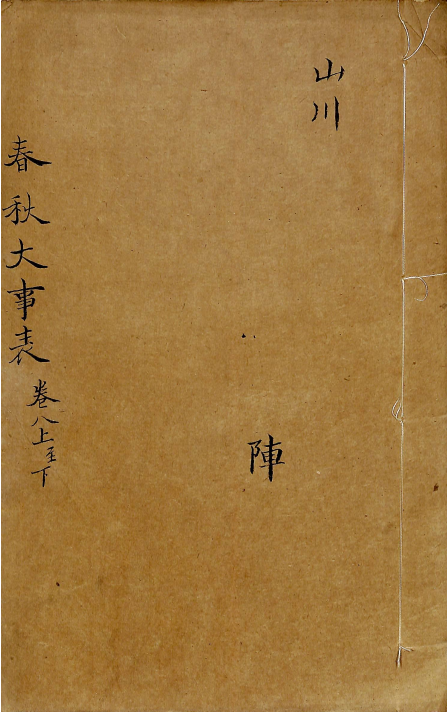 山川
陣
春秋大事表 卷八上至下